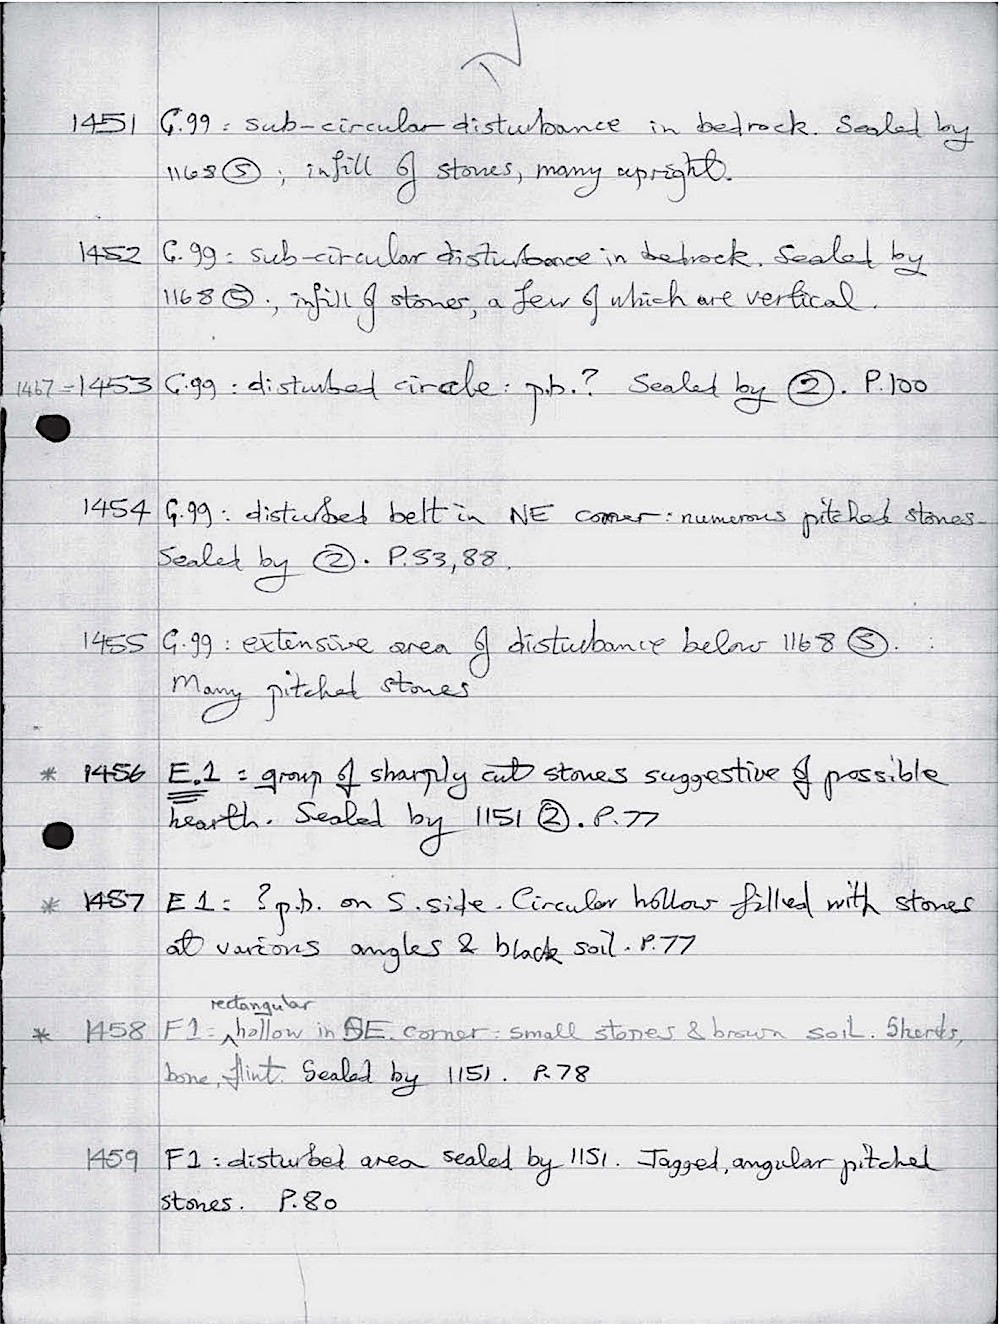 1451 G.99 : sub-circular disturbance in bedrock. Sealed by
1168 ⑤ ; infill of stones, many upright.
1452 G.99 : sub-circular disturbance in bedrock. Sealed by
1168 ⑤ ; infill of stones, a few of which are vertical.
1467 = 1453 G.99 : disturbed circle : p.h.? Sealed by ②. P.100
1454 G.99 : disturbed belt in NE corner : numerous pitched stones.
Sealed by ②. P.53, 88.
1455 G.99 : extensive area of disturbance below 1168 ⑤.
Many pitched stones
* 1456 E.1 : group of sharply cut stones suggestive of possible
hearth. Sealed by 1151 ②. P.77
* 1457 E1 : ? p.h. on S. side. Circular hollow filled with stones
at various angles & black soil. P.77
rectangular
* 1458 F1 : hollow in SE. corner : small stones & brown soil. Sherds,
bone, flint. Sealed by 1151. P.78
1459 F1 : disturbed area sealed by 1151. Jagged, angular pitched
stones. P.80